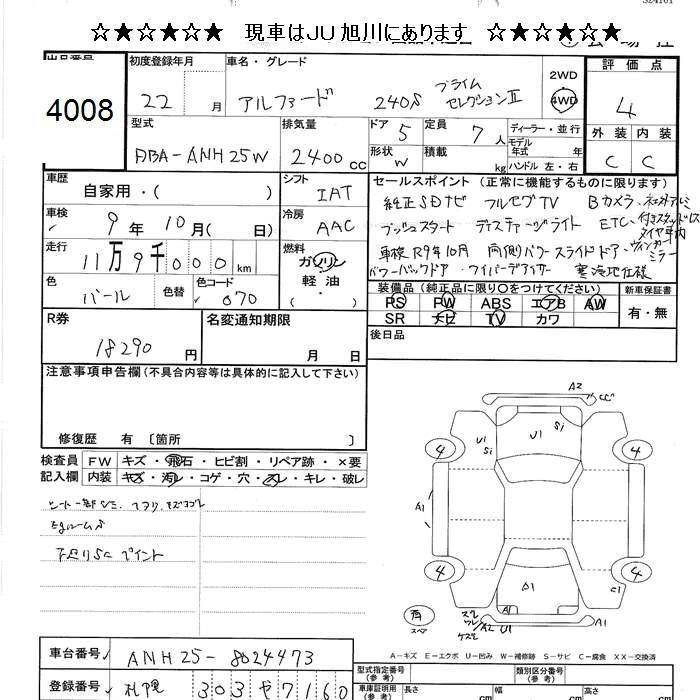 ☆★☆★☆★ 現車はJU旭川にあります ☆★☆★☆★
4008
初度登録年月
22 月
車名・グレード
アルファード 240S プライム
セレクションⅡ
2WD
4WD
評価点
4
外装 内装
C C
型式
DBA-ANH25W
排気量
2400 cc
ドア 5
形状 W
定員 7 人
積載 kg
ディーラー・並行
モデル
年式 年
ハンドル 左・右
車歴
自家用・( )
シフト
IAT
車検
9年10月( 日)
冷房
AAC
走行
11万9千000km
燃料
ガソリン
軽油
( )
色
パール
色替
色コード
070
セールスポイント (正常に機能するものに限ります)
純正SDナビ フルセグTV Bカメラ
プッシュスタート ディスチャージライト ETC
車検R9年10月 両側パワースライドドア・ウィンカーミラー
パワーバックドア・ワイパーデアイサー 寒冷地仕様
装備品 (純正品に限り○をつけてください)
PS PW ABS エアB AW
SR ナビ TV カワ
新車保証書
有・無
後日品
R券
18290 円
名変通知期限
月 日
注意事項申告欄(不具合内容等は具体的に記入して下さい)
修復歴 有 〔箇所 〕
検査員
記入欄
FW キズ・飛石・ヒビ割・リペア跡・×要
内装 キズ・汚レ・コゲ・穴・スレ・キレ・破レ
下廻りSC ペイント
A2
CC
U1
Si
U1
Si
4
4
4
4
A1
A1
A1
A1
C1
A2
U1
A1
スペ
A-キズ E-エクボ U-凹み W-補修跡 S-サビ C-腐食 XX-交換済
車台番号
ANH25-8024473
登録番号
札幌 303 や 7160
型式指定番号
(参考)
類別区分番号
(参考)
車庫証明用
(参考)
長さ cm
幅 cm
高さ cm